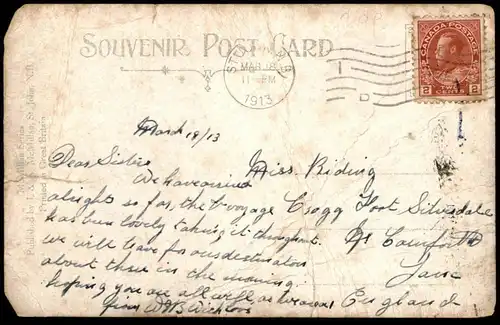 SOUVENIR POST CARD
MAR 18
11 PM
1913
CANADA POSTAGE
2 CENTS 2
McMillan Series
Published by J. & A. McMillan, St. John, N.B.
Printed in Great Britain
March 18/13
Dear Sister
We have arrived
alright so far, the voyage
has been lovely taking it throughout
we will leave for our destination
about three in the morning
hoping you are all well as we are
from
Miss Riding
Cragg Foot Silverdale
Nr Carnforth
Lanc
England